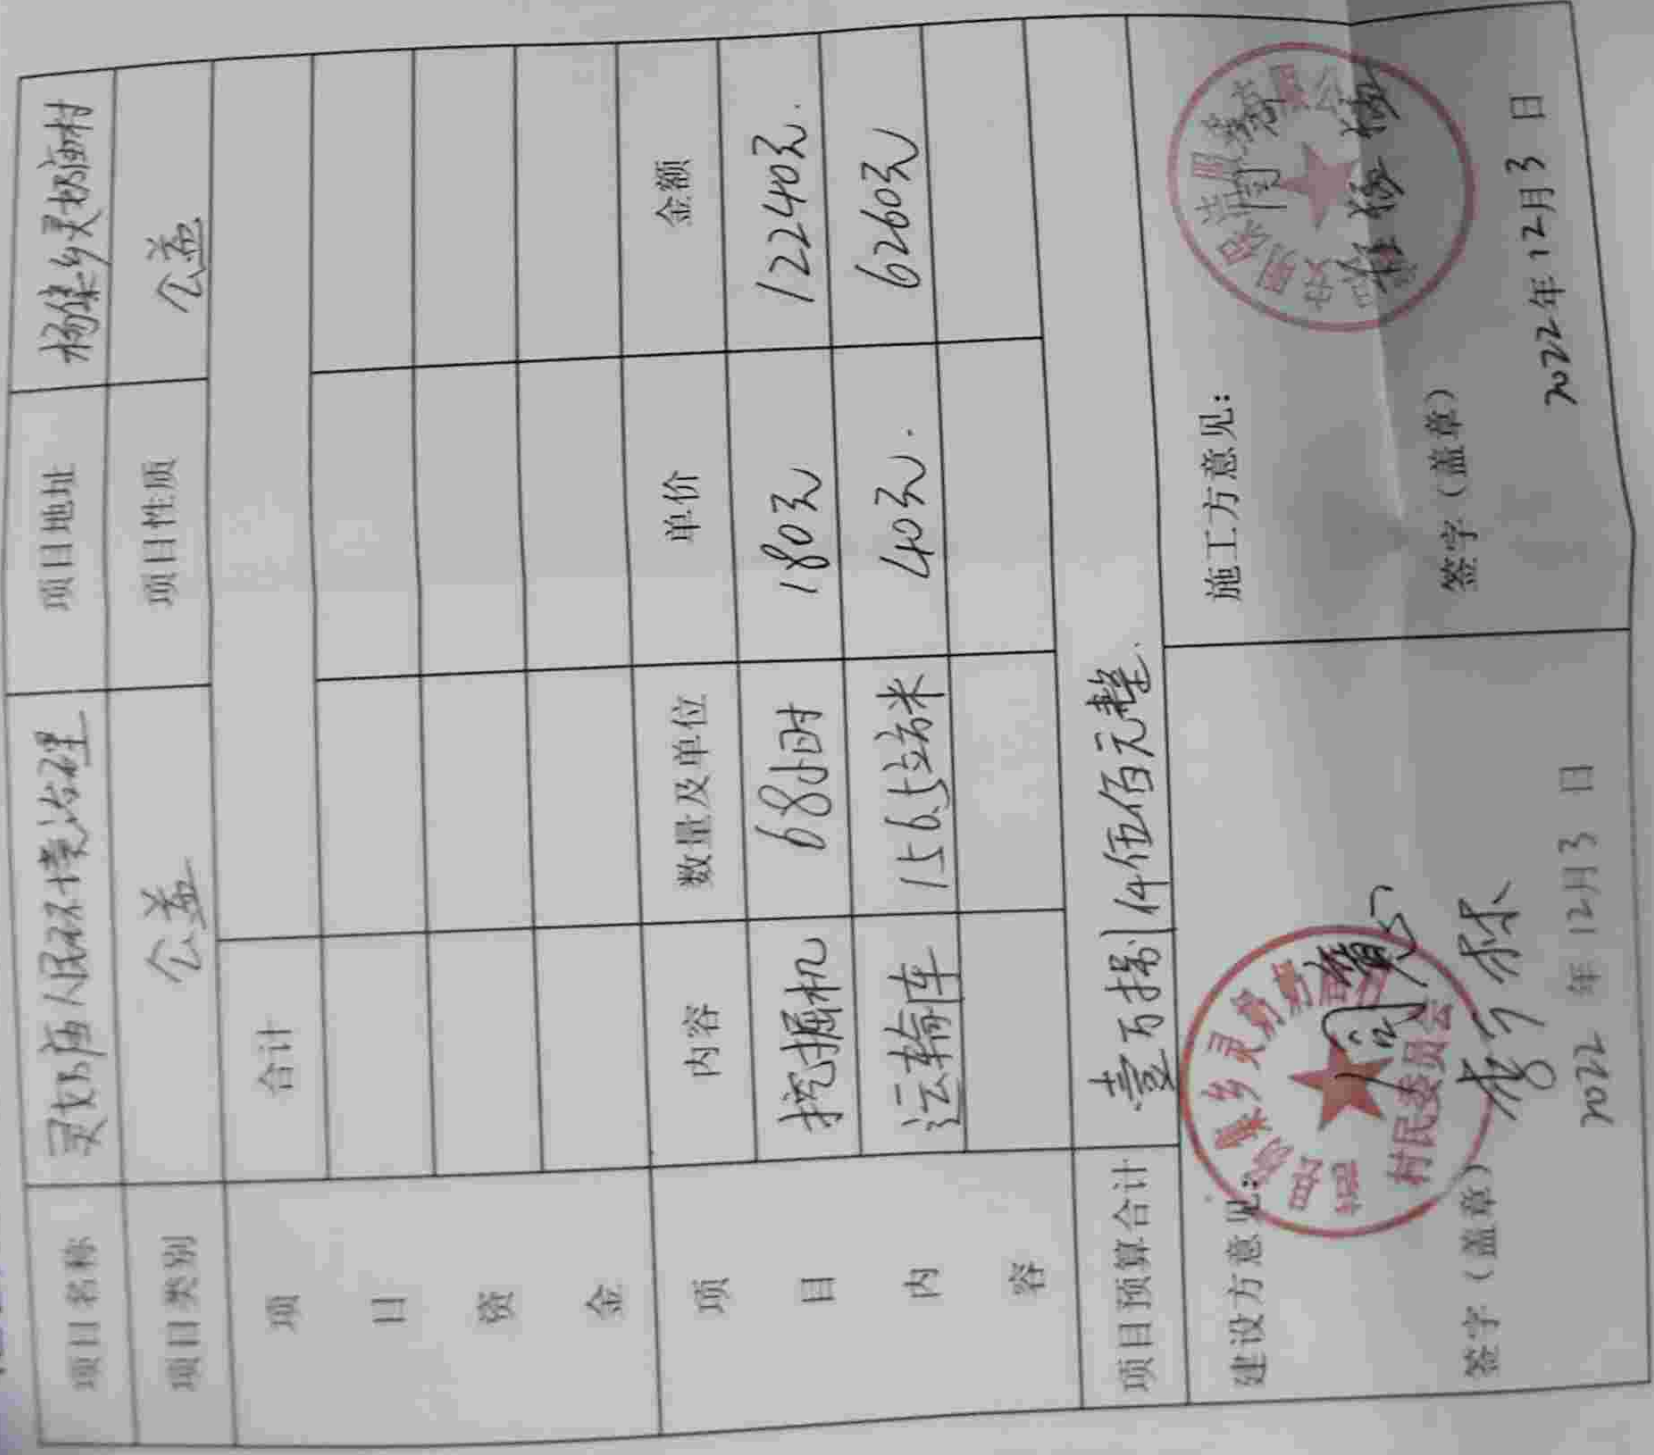 项目名称 灵奶庙人居环境治理 项目地址 杨集乡灵奶庙村
项目类别 公益 项目性质 公益
项目资金 合计
项目内容 内容 数量及单位 单价 金额
挖掘机 68小时 180元 12240元.
运输车 156.5立方米 40元. 6260元
项目预算合计 壹万捌仟伍佰元整.
建设方意见: 施工方意见:
村民委员会
签字(盖章) 签字(盖章)
2022年12月3日 2022年12月3日